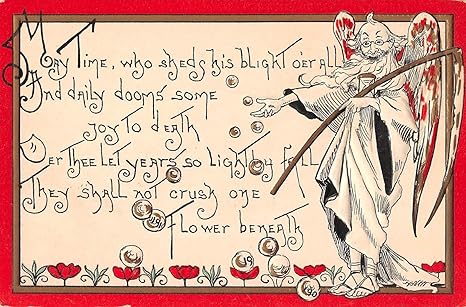 May Time, who sheds his blight o'er all
And daily dooms some
joy to death
O'er thee let years so lightly fall
They shall not crush one
Flower beneath